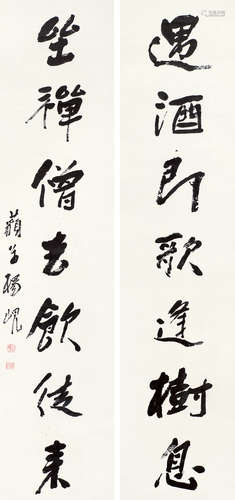 遇酒即歌逢樹息
坐禪僧去飲徒來
藐翁楊峴